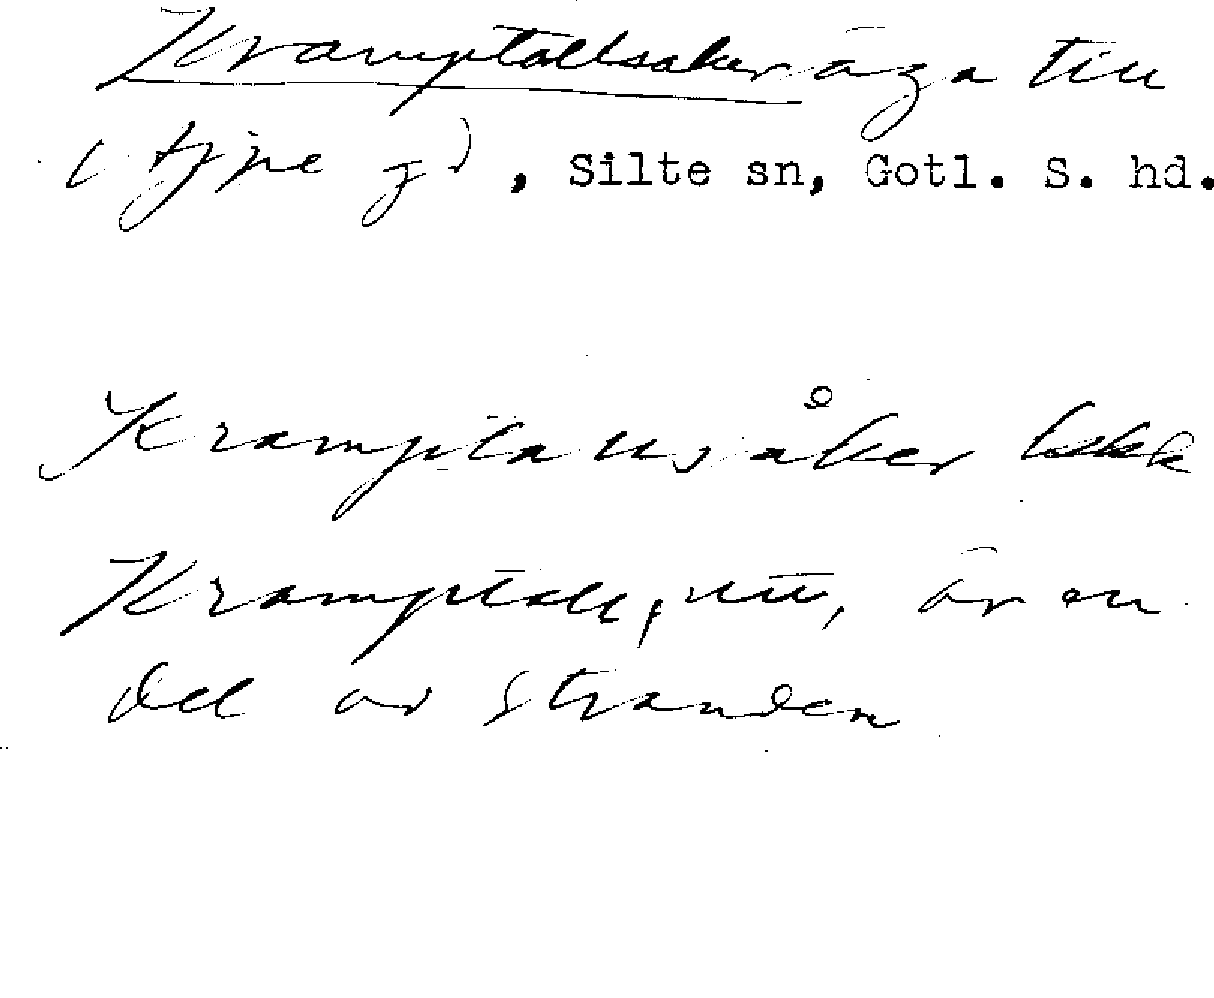 Kramptallsaker äga till
( type gd ) , Silte sn, Gotl. S. hd.
Kramptallsåker
Kramptall, är en
del av stranden